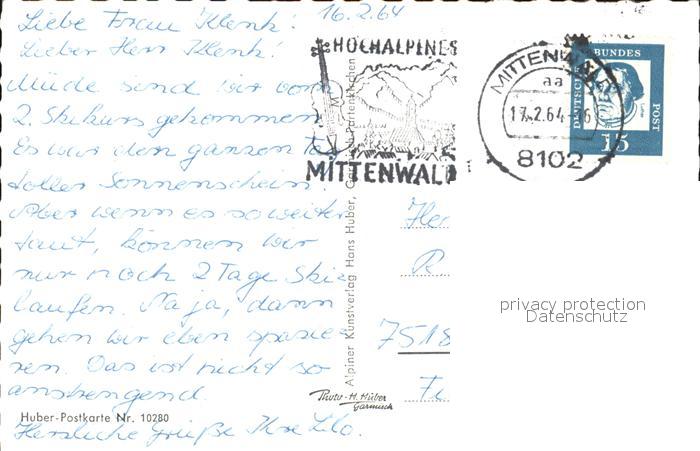 16.2.64
Liebe Frau Klenk!
Lieber Herr Klenk!
Müde sind wir vom
2. Skikurs gekommen.
Es war den ganzen
toller Sonnenschein
Aber wenn es so weiter
taut, können wir
nur noch 2 Tage Ski-
laufen. Na ja, dann
gehen wir eben spazie-
ren. Das ist nicht so
anstrengend.
Huber-Postkarte Nr. 10280
Herzliche Grüße Ihre Lilo.
HOCHALPINES
MITTENWALD
Alpiner Kunstverlag Hans Huber, Partenkirchen
Photo-H. Huber
Garmisch
MITTENWALD
aa
17.2.64
8102
DEUTSCHE
BUNDES
POST
15
7518
privacy protection
Datenschutz